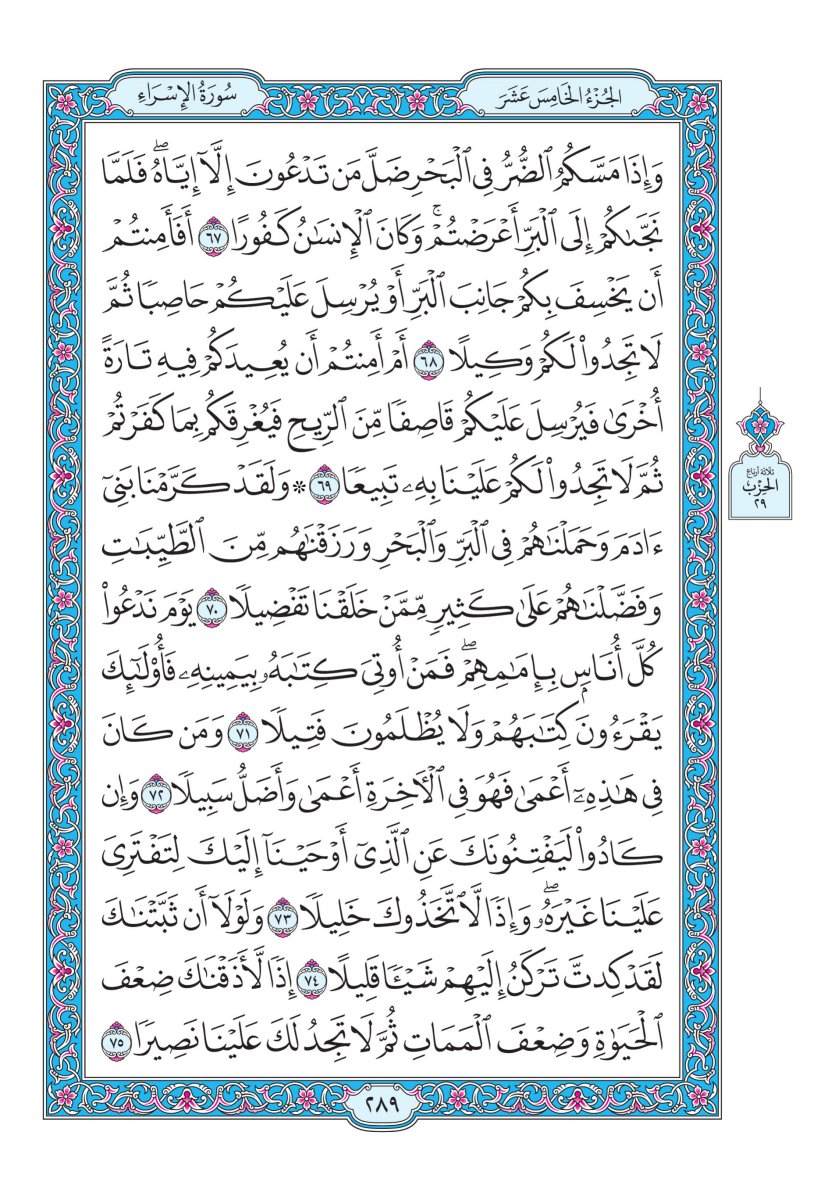 الجُزْءُ الخَامِسَ عَشَرَ
سُورَةُ الإِسْرَاءِ
وَإِذَا مَسَّكُمُ ٱلضُّرُّ فِى ٱلْبَحْرِ ضَلَّ مَن تَدْعُونَ إِلَّآ إِيَّاهُ ۖ فَلَمَّا
نَجَّىٰكُمْ إِلَى ٱلْبَرِّ أَعْرَضْتُمْ ۚ وَكَانَ ٱلْإِنسَٰنُ كَفُورًا ٦٧ أَفَأَمِنتُمْ
أَن يَخْسِفَ بِكُمْ جَانِبَ ٱلْبَرِّ أَوْ يُرْسِلَ عَلَيْكُمْ حَاصِبًا ثُمَّ
لَا تَجِدُوا۟ لَكُمْ وَكِيلًا ٦٨ أَمْ أَمِنتُمْ أَن يُعِيدَكُمْ فِيهِ تَارَةً
أُخْرَىٰ فَيُرْسِلَ عَلَيْكُمْ قَاصِفًا مِّنَ ٱلرِّيحِ فَيُغْرِقَكُم بِمَا كَفَرْتُمْ
ثُمَّ لَا تَجِدُوا۟ لَكُمْ عَلَيْنَا بِهِۦ تَبِيعًا ٦٩ ۞ وَلَقَدْ كَرَّمْنَا بَنِىٓ
ءَادَمَ وَحَمَلْنَٰهُمْ فِى ٱلْبَرِّ وَٱلْبَحْرِ وَرَزَقْنَٰهُم مِّنَ ٱلطَّيِّبَٰتِ
وَفَضَّلْنَٰهُمْ عَلَىٰ كَثِيرٍ مِّمَّنْ خَلَقْنَا تَفْضِيلًا ٧٠ يَوْمَ نَدْعُوا۟
كُلَّ أُنَاسٍۭ بِإِمَٰمِهِمْ ۖ فَمَنْ أُوتِىَ كِتَٰبَهُۥ بِيَمِينِهِۦ فَأُو۟لَٰٓئِكَ
يَقْرَءُونَ كِتَٰبَهُمْ وَلَا يُظْلَمُونَ فَتِيلًا ٧١ وَمَن كَانَ
فِى هَٰذِهِۦٓ أَعْمَىٰ فَهُوَ فِى ٱلْءَاخِرَةِ أَعْمَىٰ وَأَضَلُّ سَبِيلًا ٧٢ وَإِن
كَادُوا۟ لَيَفْتِنُونَكَ عَنِ ٱلَّذِىٓ أَوْحَيْنَآ إِلَيْكَ لِتَفْتَرِىَ
عَلَيْنَا غَيْرَهُۥ ۖ وَإِذًا لَّٱتَّخَذُوكَ خَلِيلًا ٧٣ وَلَوْلَآ أَن ثَبَّتْنَٰكَ
لَقَدْ كِدتَّ تَرْكَنُ إِلَيْهِمْ شَيْـًٔا قَلِيلًا ٧٤ إِذًا لَّأَذَقْنَٰكَ ضِعْفَ
ٱلْحَيَوٰةِ وَضِعْفَ ٱلْمَمَاتِ ثُمَّ لَا تَجِدُ لَكَ عَلَيْنَا نَصِيرًا ٧٥
ثلاثة أرباع
الحِزْب
٢٩
٢٨٩